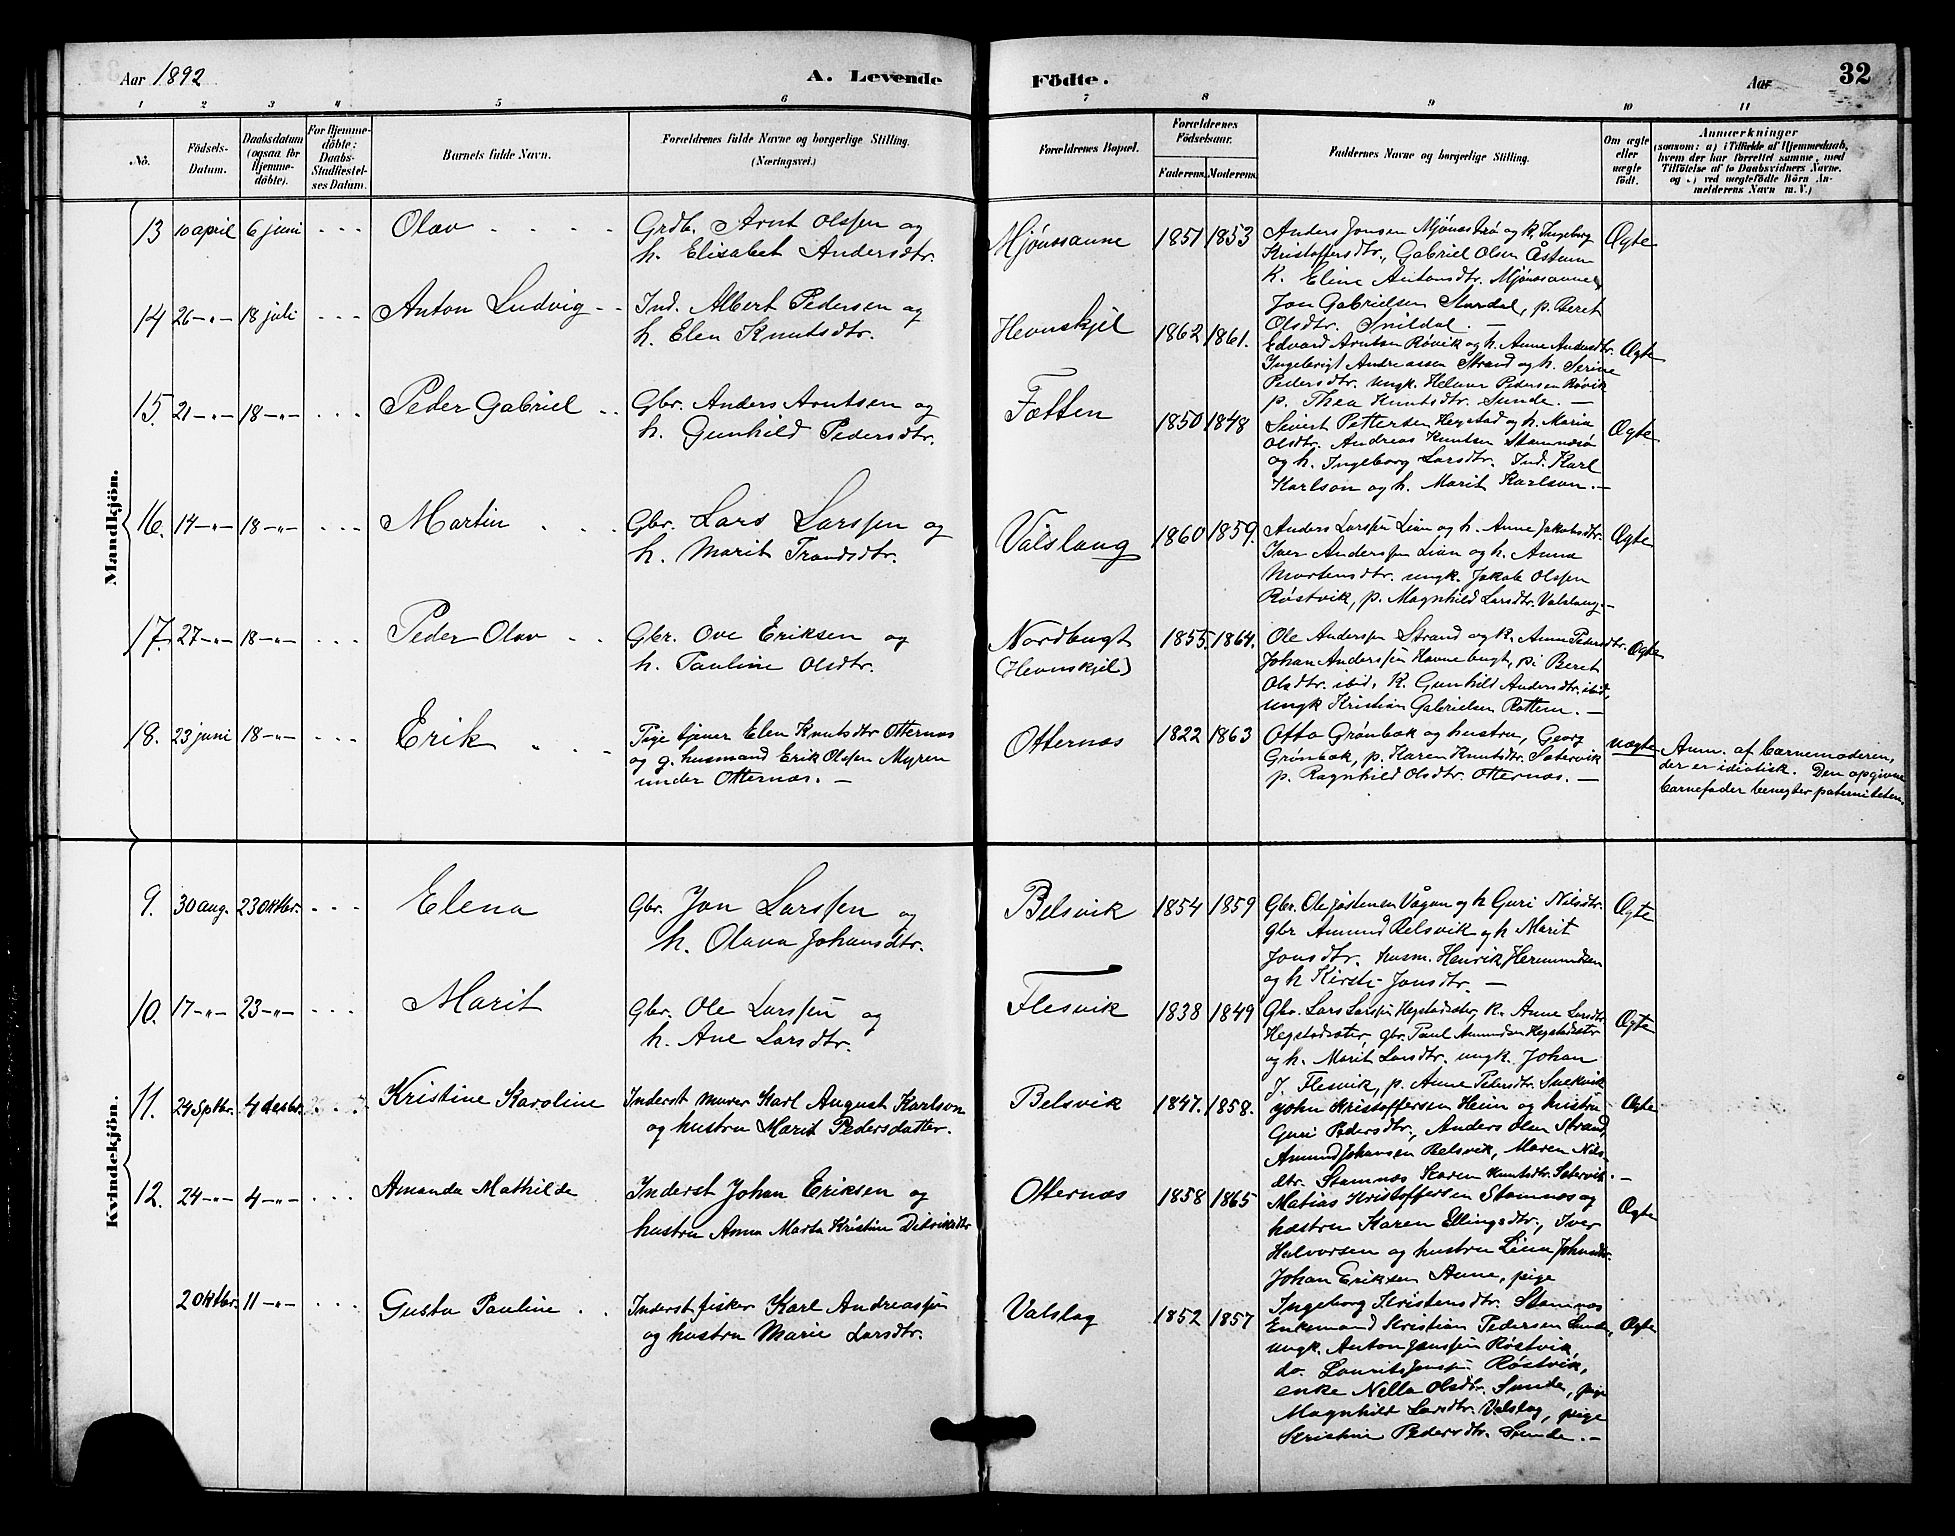 Aar 1892
A. Levende
Födte.
Aar
32
1 2 3 4 5 6 7 8 9 10 11
No.
Födsels-
Datum.
Daabsdatum
(ogsaa for
Hjemme-
döbte).
For Hjemme-
döbte:
Daabs-
Stadfæstel-
ses Datum.
Barnets fulde Navn.
Forældrenes fulde Navne og borgerlige Stilling.
(Næringsvei.)
Forældrenes Bopæl.
Forældrenes
Födselsaar.
Faderens. Moderens.
Faddernes Navne og borgerlige Stilling.
Om ægte
eller
uægte
födt.
Anmærkninger
(saasom: a) i Tilfælde af Hjemmedaab,
hvem der har forrettet samme, med
Tilföielse af to Daabsvidners Navne,
og ved uægtefödte Börn An-
melderens Navn m. V.)
Mandkjön.
13 10 april 6 juni - - - Olav
Grdb. Arnt Olssen og
h. Elisabet Andersdtr.
Mjønssanne
1851 1853
Anders Jonsen og k. Ingeborg
Kristoffersdtr., Gabriel Olsen Åstum
K. Eline Antonsdtr. Mjønssanne,
Jon Gabrielsen Stordal, p. Beret
Olsdtr. Snildal. —
Ægte
14 26 -"- 18 juli - - - Anton Ludvig - -
Ind. Albert Pedersen og
h. Elen Knutsdtr.
Hevnskjel
1862 1861.
Edvard Arntsen Røvik og h. Anne Andersdtr.
Ingebrigt Andreassen Strand og h. Serine
Pedersdtr. ungk. Helmer Pedersen Røvik
p. Thea Knutsdtr. Sunde. —
Ægte
15. 21 -"- 18 -"- - - - Peder Gabriel - -
Gbr. Anders Arntsen og
h. Gunhild Pedersdtr.
Fætten
1850 1848
Sivert Pettersen Hegstad og h. Maria
Olsdtr. Andreas Knutsen Stamnesø
og h. Ingeborg Larsdtr. Ind. Karl
Karlson og h. Marit Karlson. —
Ægte
16. 14 -"- 18 -"- - - - Martin
Gbr. Lars Larssen og
h. Marit Trondsdtr.
Valslaug
1860 1859.
Anders Larssen Lian og h. Anne Jakobsdtr.
Iver Anderssen Lian og h. Anna
Mortensdtr. ungk. Jakob Olssen
Røstvik, p. Magnhild Larsdtr. Valslaug. —
Ægte
17. 27 -"- 18 -"- - - - Peder Olav - -
Gbr. Ove Eriksen og
h. Pauline Olsdtr.
Nordbugt
(Hevnskjel)
1855. 1864.
Ole Anderssen Strand og k. Anne Petersdtr.
Johan Anderssen Havnebugt, pi Beret
Olsdtr. ibid, K. Gunhild Andersdtr. ibid,
ungk Kristian Gabrielsen Rottem. —
Ægte
18. 23 juni 18 -"- - - - Erik
Pige tjener Elen Knutsdtr Otternes
og g. husmand Erik Olssen Myren
under Otternæs. —
Otternæs
1822 1863
Otto Grønbæk og hustru, Georg
Grønbæk, p. Karen Knutsdtr. Sætervik
p. Ragnhild Olsdtr. Otternæs. —
uægte
Anm. af barnemoderen,
der er idiotisk. Den opgivne
barnefader benegter paterniteten.
Kvindekjön.
9. 30 aug. 23 oktbr. - - - Elena
Gbr. Jon Larssen og
h. Olava Johansdtr.
Belsvik
1854 1859
Gbr. Ole Jostensen Vågan og h Guri Nilsdtr.
gbr Amund Belsvik og h Marit
Jonsdtr. husm. Henrik Hermundsen
og h Kirsti Jonsdtr. —
Ægte
10. 17 -"- 23 -"- - - - Marit
Gbr. Ole Larssen og
h. Ane Larsdtr.
Flesvik
1838 1849
Gbr. Lars Larssen Hegstadsæter, k. Anne Larsdtr
Hegstadsæter, gbr. Paul Amundsen Hegstadsæter
og h. Marit Larsdtr. ungk. Johan
J. Flesvik, p. Anne Petersdtr. Snekvik
Ægte
11. 24 Sptbr. 4 desbr. Kristine Karoline
Inderst murer Karl August Karlson
og hustru Marit Pedersdatter.
Belsvik
1847. 1858.
John Kristoffersen Heim og hustru
Guri Pedersdtr., Anders Olsen Strand,
Amund Johansen Belsvik, Maren Nils-
dtr. Stamnæs Karen Knutsdtr. Sætervik. —
Ægte
12. 24 -"- 4 -"- - - - Amanda Mathilde
Inderst Johan Eriksen og
hustru Anna Marta Kristine Didriksdtr
Otternæs
1858 1865
Matias Kristoffersen Stamnæs og
hustru Karen Ellingsdtr., Iver
Halvorsen og hustru Lina Johansdtr.
Johan Eriksen Aune, pige
Ingeborg Kristensdtr. Stamnæs
Ægte
2 Oktbr. 11 -"- - - - Gusta Pauline - -
Inderst fisker Karl Andreassen
og hustru Marie Larsdtr.
Valslag
1852 1857
Enkemand Kristian Pedersen Sunde,
ungk. Anton Janssen Røstvik,
do. Laurits Janssen Røstvik,
enke Nella Olsdtr. Sunde, pige
Magnhild Larsdtr. Valslag, pige
Kristine Pedersdtr. Sunde. —
Ægte